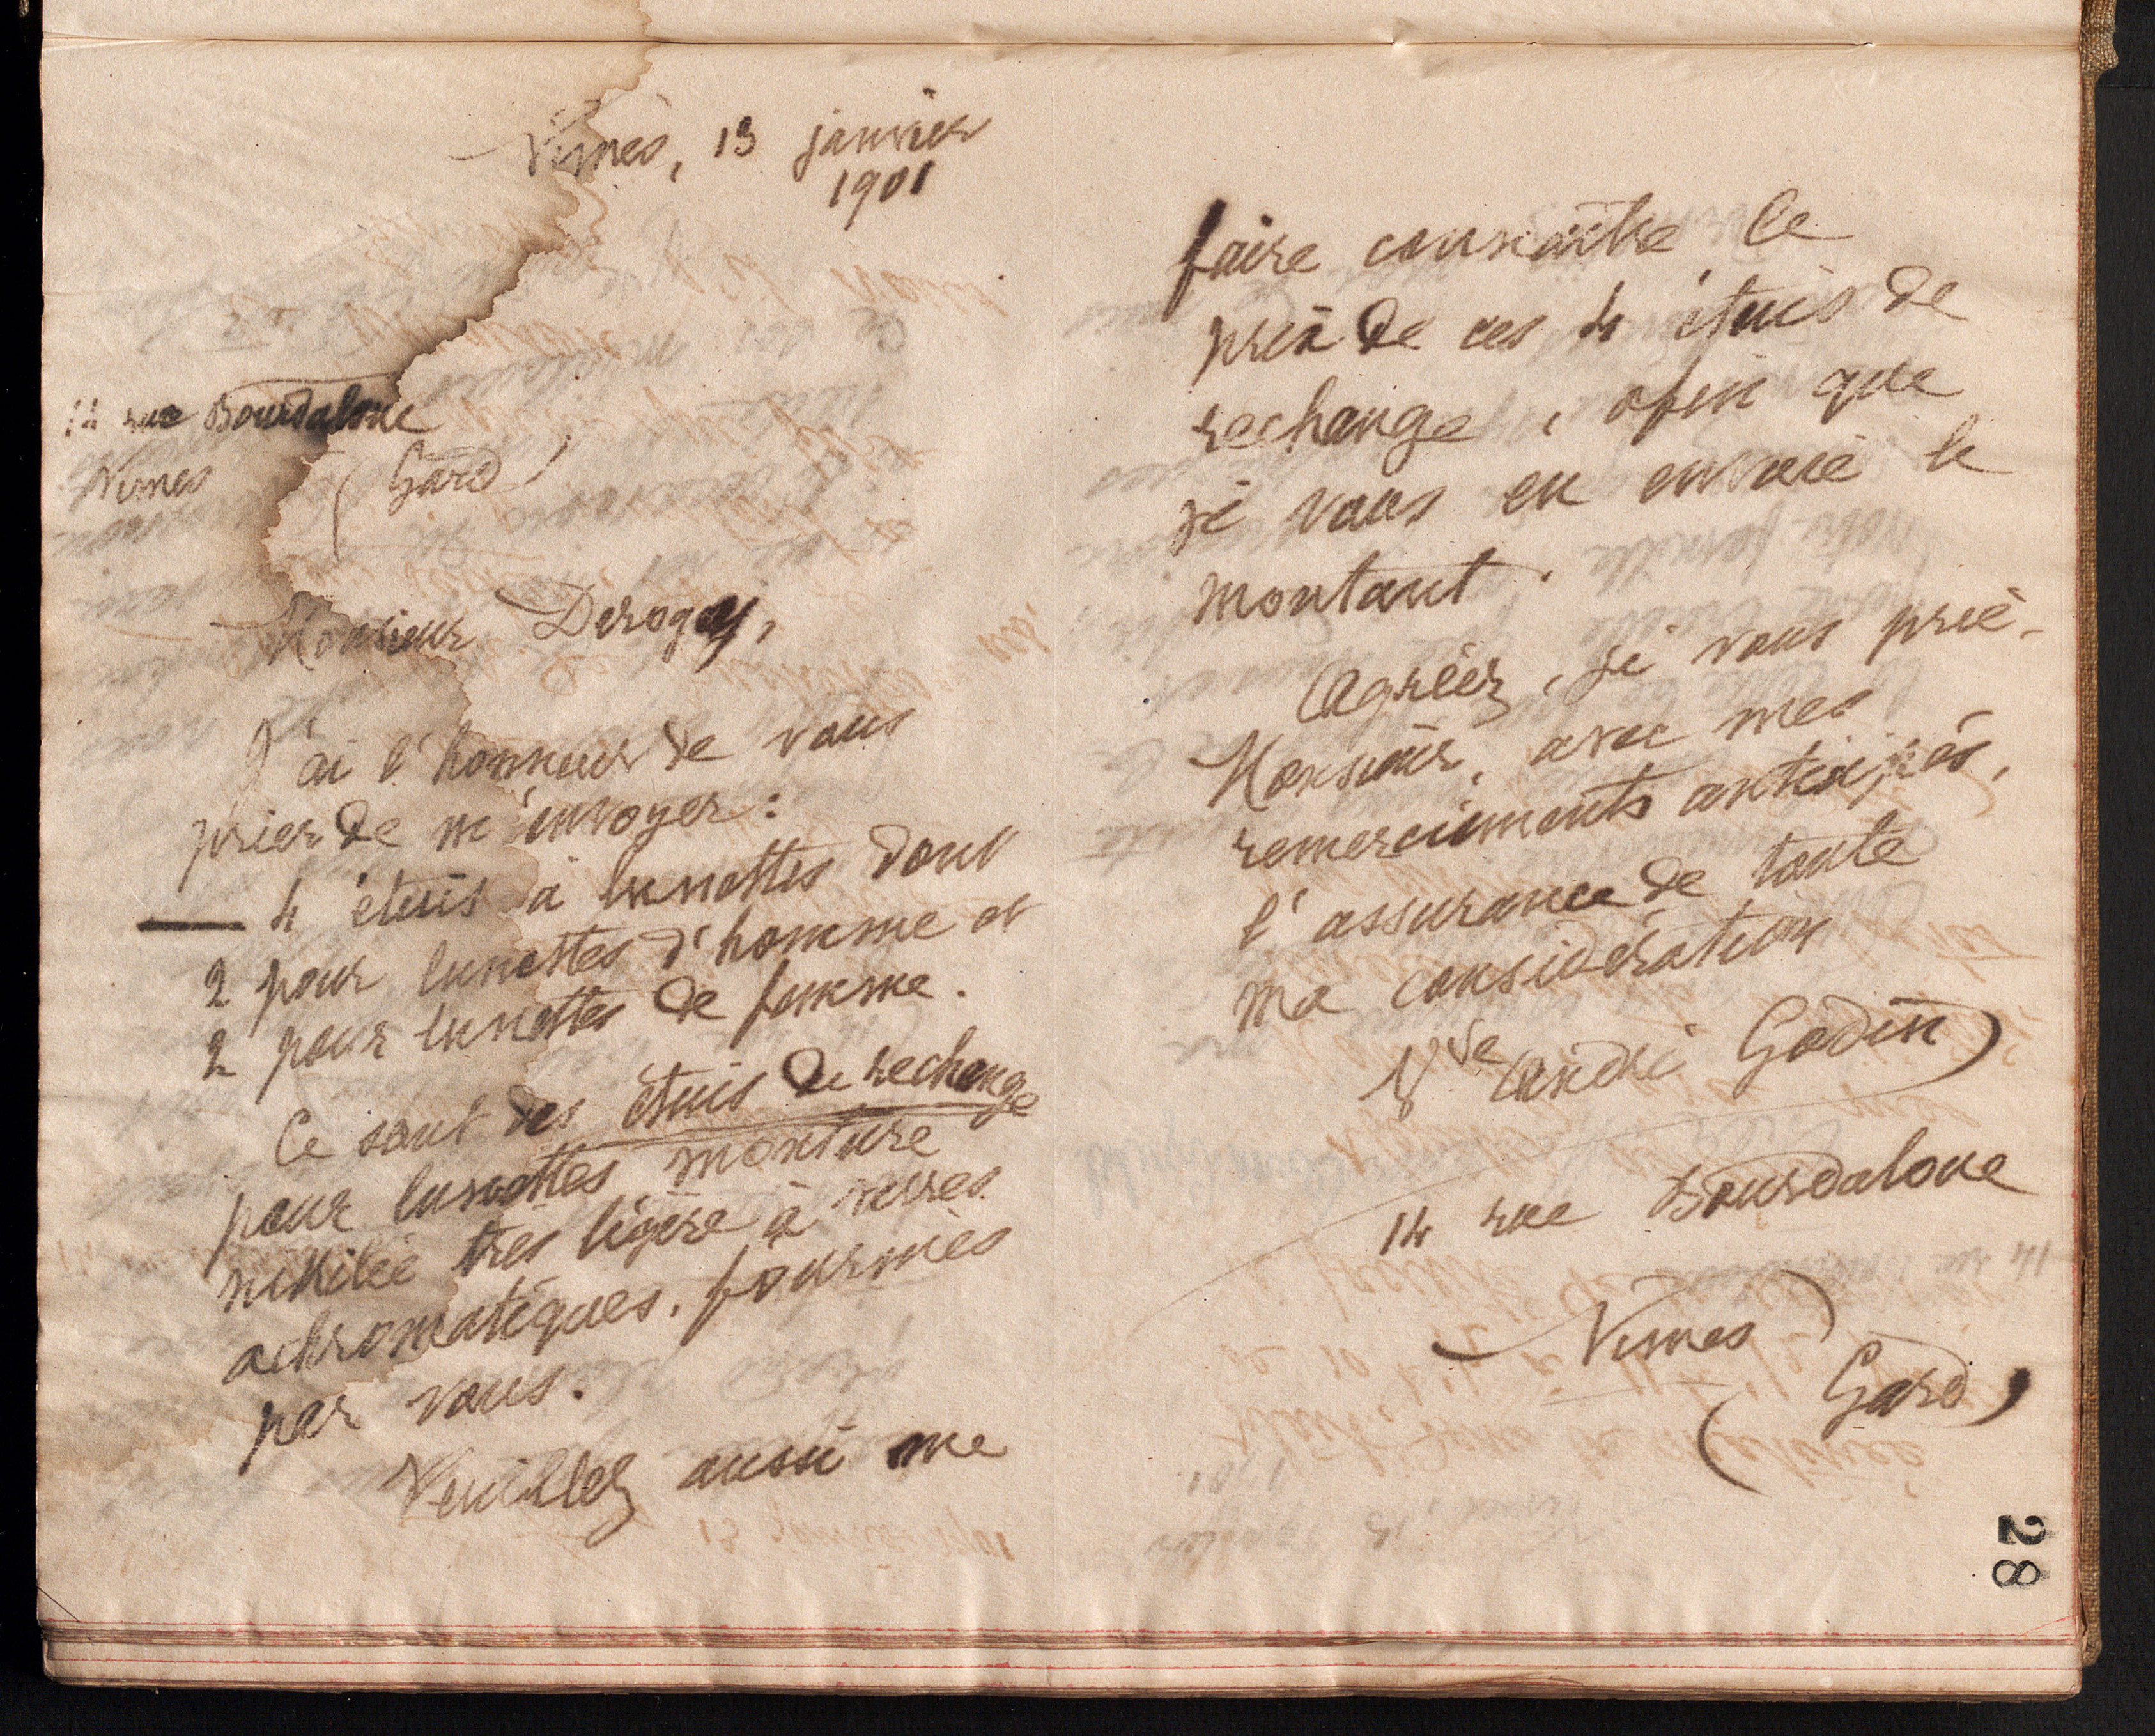 Nimes, 13 janvier
1901
14 rue Bourdaloue
Nimes (Gard)
Monsieur Derogy,
J'ai l'honneur de vous
prier de m'envoyer :
— 4 étuis à lunettes dont
2 pour lunettes d'homme et
2 pour lunettes de femme.
Ce sont des étuis de rechange
pour lunettes monture
nikilée très légère à verres
achromatiques, fournies
par vous.
Veuillez aussi me
faire connaitre le
prix de ces 4 étuis de
rechange, afin que
je vous en envoie le
montant.
Agréez, je vous prie,
Monsieur, avec mes
remerciements anticipés,
l'assurance de toute
ma considération
Vve André Godin
14 rue Bourdaloue
Nimes
(Gard)
28